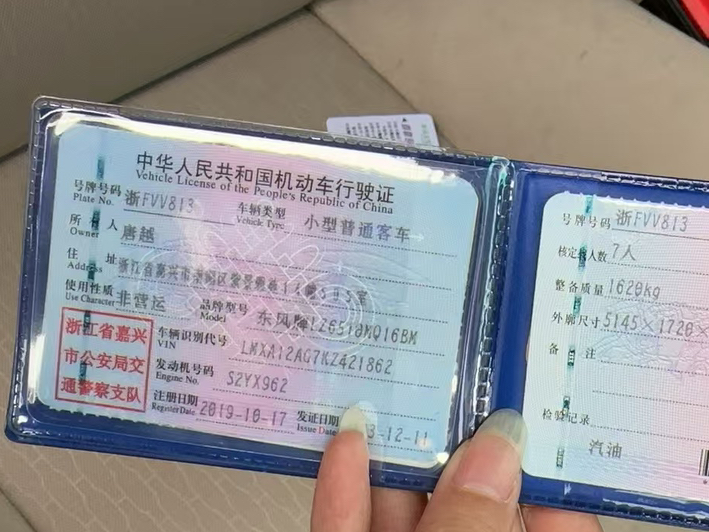 中华人民共和国机动车行驶证
Vehicle License of the People's Republic of China
号牌号码 浙FVV813 车辆类型 小型普通客车
Plate No. Vehicle Type
所有人 唐越
Owner
住址 浙江省嘉兴市
Address
使用性质 非营运 品牌型号 东风牌LZ6510MQ16BM
Use Character Model
浙江省嘉兴
市公安局交
通警察支队
车辆识别代号 LMXA12AG7KZ421862
VIN
发动机号码 S2YX962
Engine No.
注册日期 2019-10-17 发证日期 3-12-11
Register Date Issue Date
号牌号码 浙FVV813
核定载人数 7人
整备质量 1620kg
外廓尺寸 5145×1720×
备注
检验记录
汽油